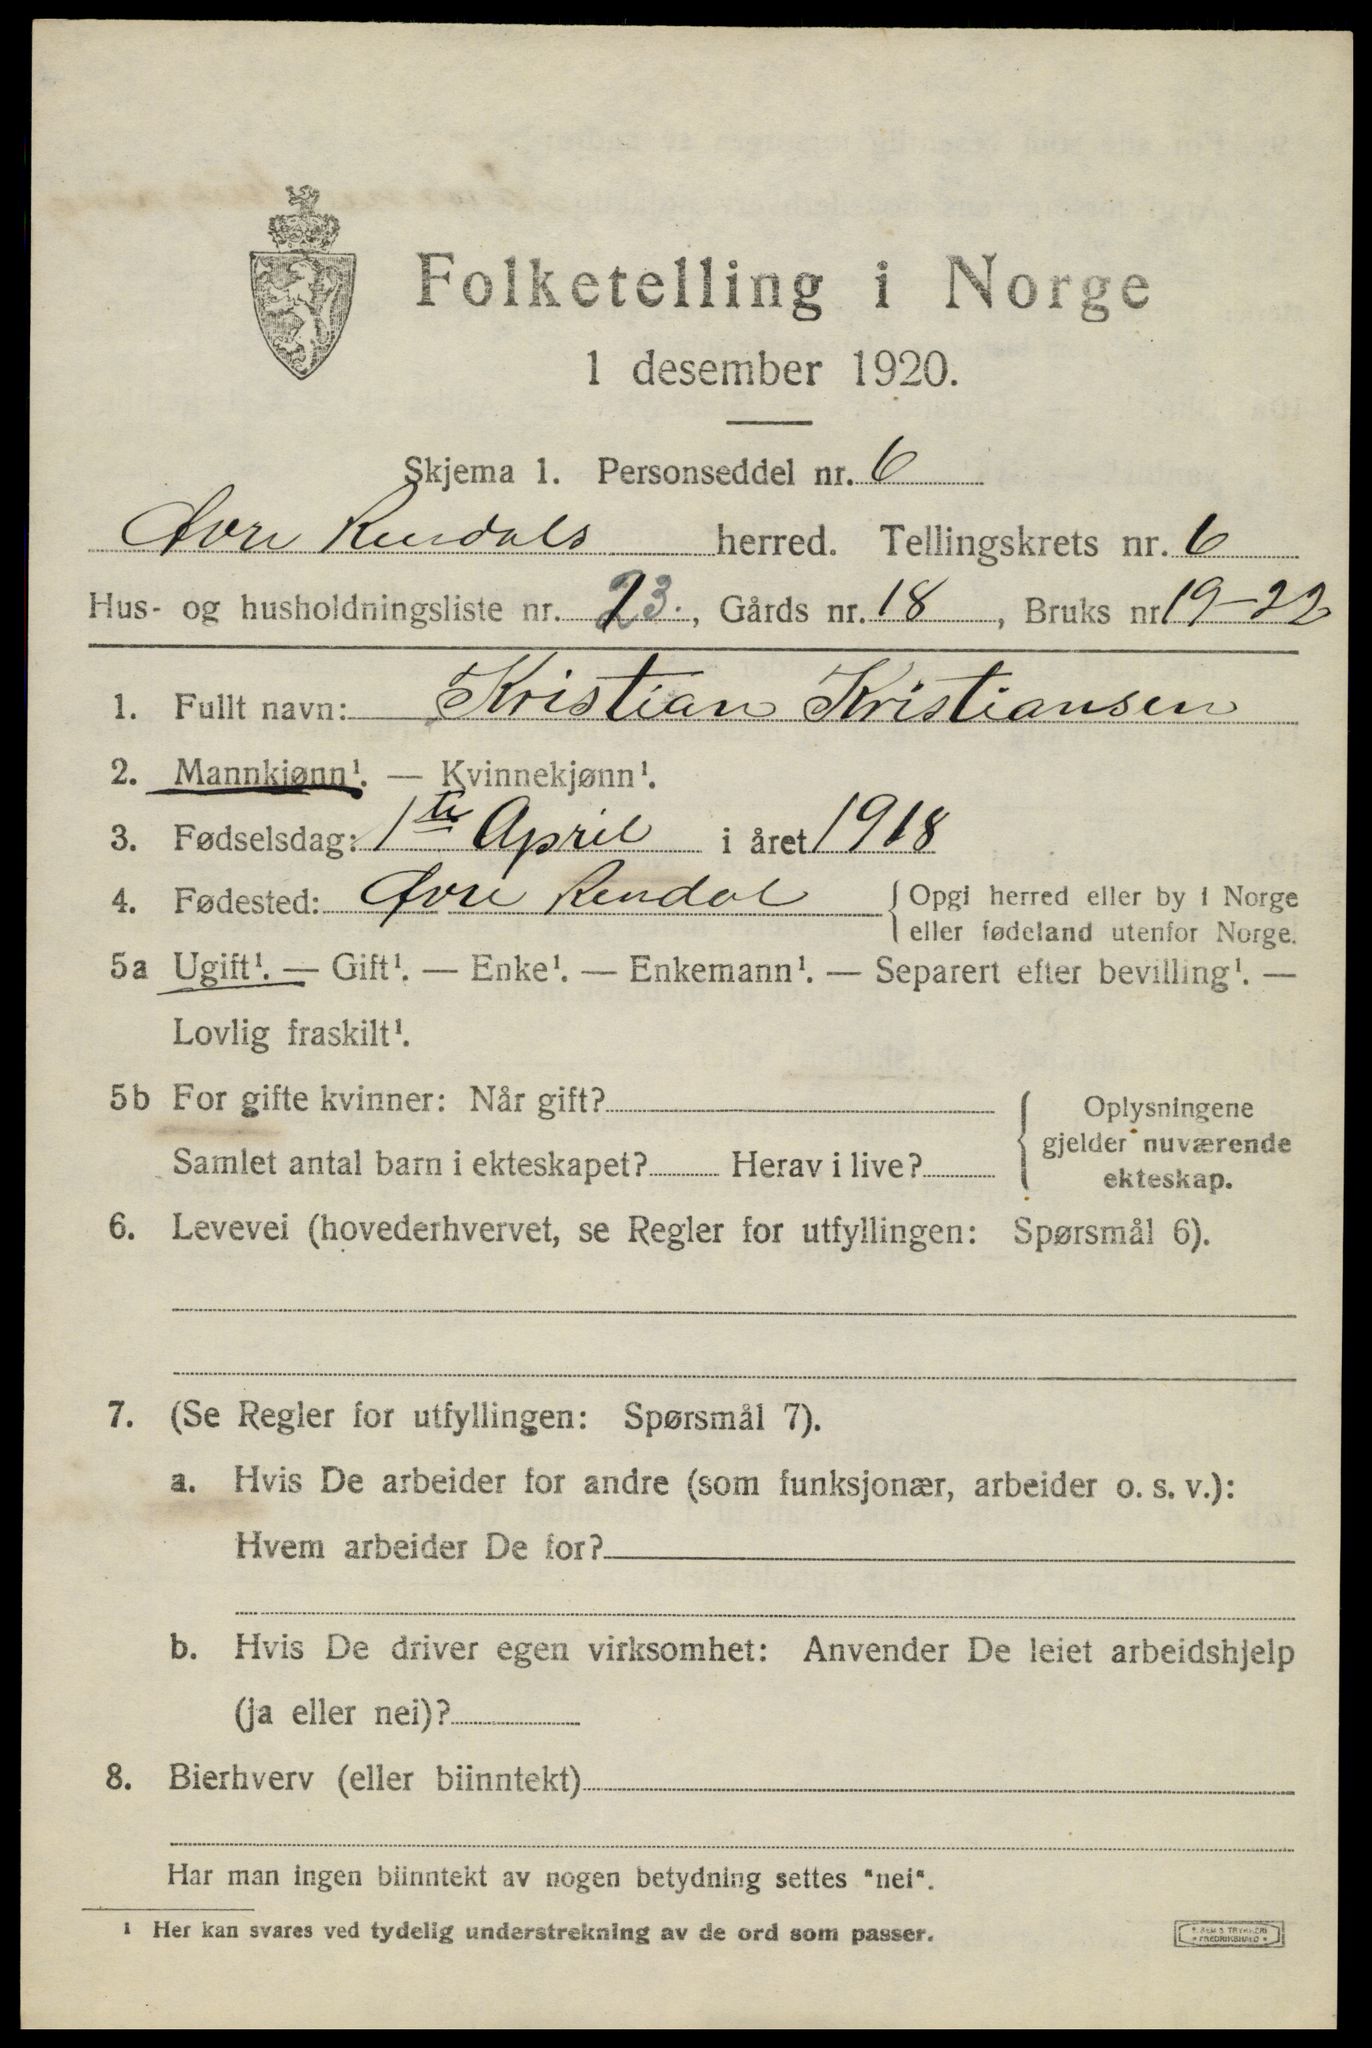 Folketelling i Norge
1 desember 1920.
Skjema 1. Personseddel nr. 6
Øvre Rendals herred. Tellingskrets nr. 6
Hus- og husholdningsliste nr. 23., Gårds nr. 18, Bruks nr 19-22
1. Fullt navn: Kristian Kristiansen
2. Mannkjønn¹. — Kvinnekjønn¹.
3. Fødselsdag: 1ste April i året 1918
4. Fødested: Øvre Rendal { Opgi herred eller by i Norge
eller fødeland utenfor Norge.
5a Ugift¹. — Gift¹. — Enke¹. — Enkemann¹. — Separert efter bevilling¹. —
Lovlig fraskilt¹.
5b For gifte kvinner: Når gift?
Samlet antal barn i ekteskapet? Herav i live?
{ Oplysningene
gjelder nuværende
ekteskap.
6. Levevei (hovederhvervet, se Regler for utfyllingen: Spørsmål 6).
7. (Se Regler for utfyllingen: Spørsmål 7).
a. Hvis De arbeider for andre (som funksjonær, arbeider o. s. v.):
Hvem arbeider De for?
b. Hvis De driver egen virksomhet: Anvender De leiet arbeidshjelp
(ja eller nei)?
8. Bierhverv (eller biinntekt)
Har man ingen biinntekt av nogen betydning settes "nei".
¹ Her kan svares ved tydelig understrekning av de ord som passer.
TRYKKERI
FREDRIKSHALD